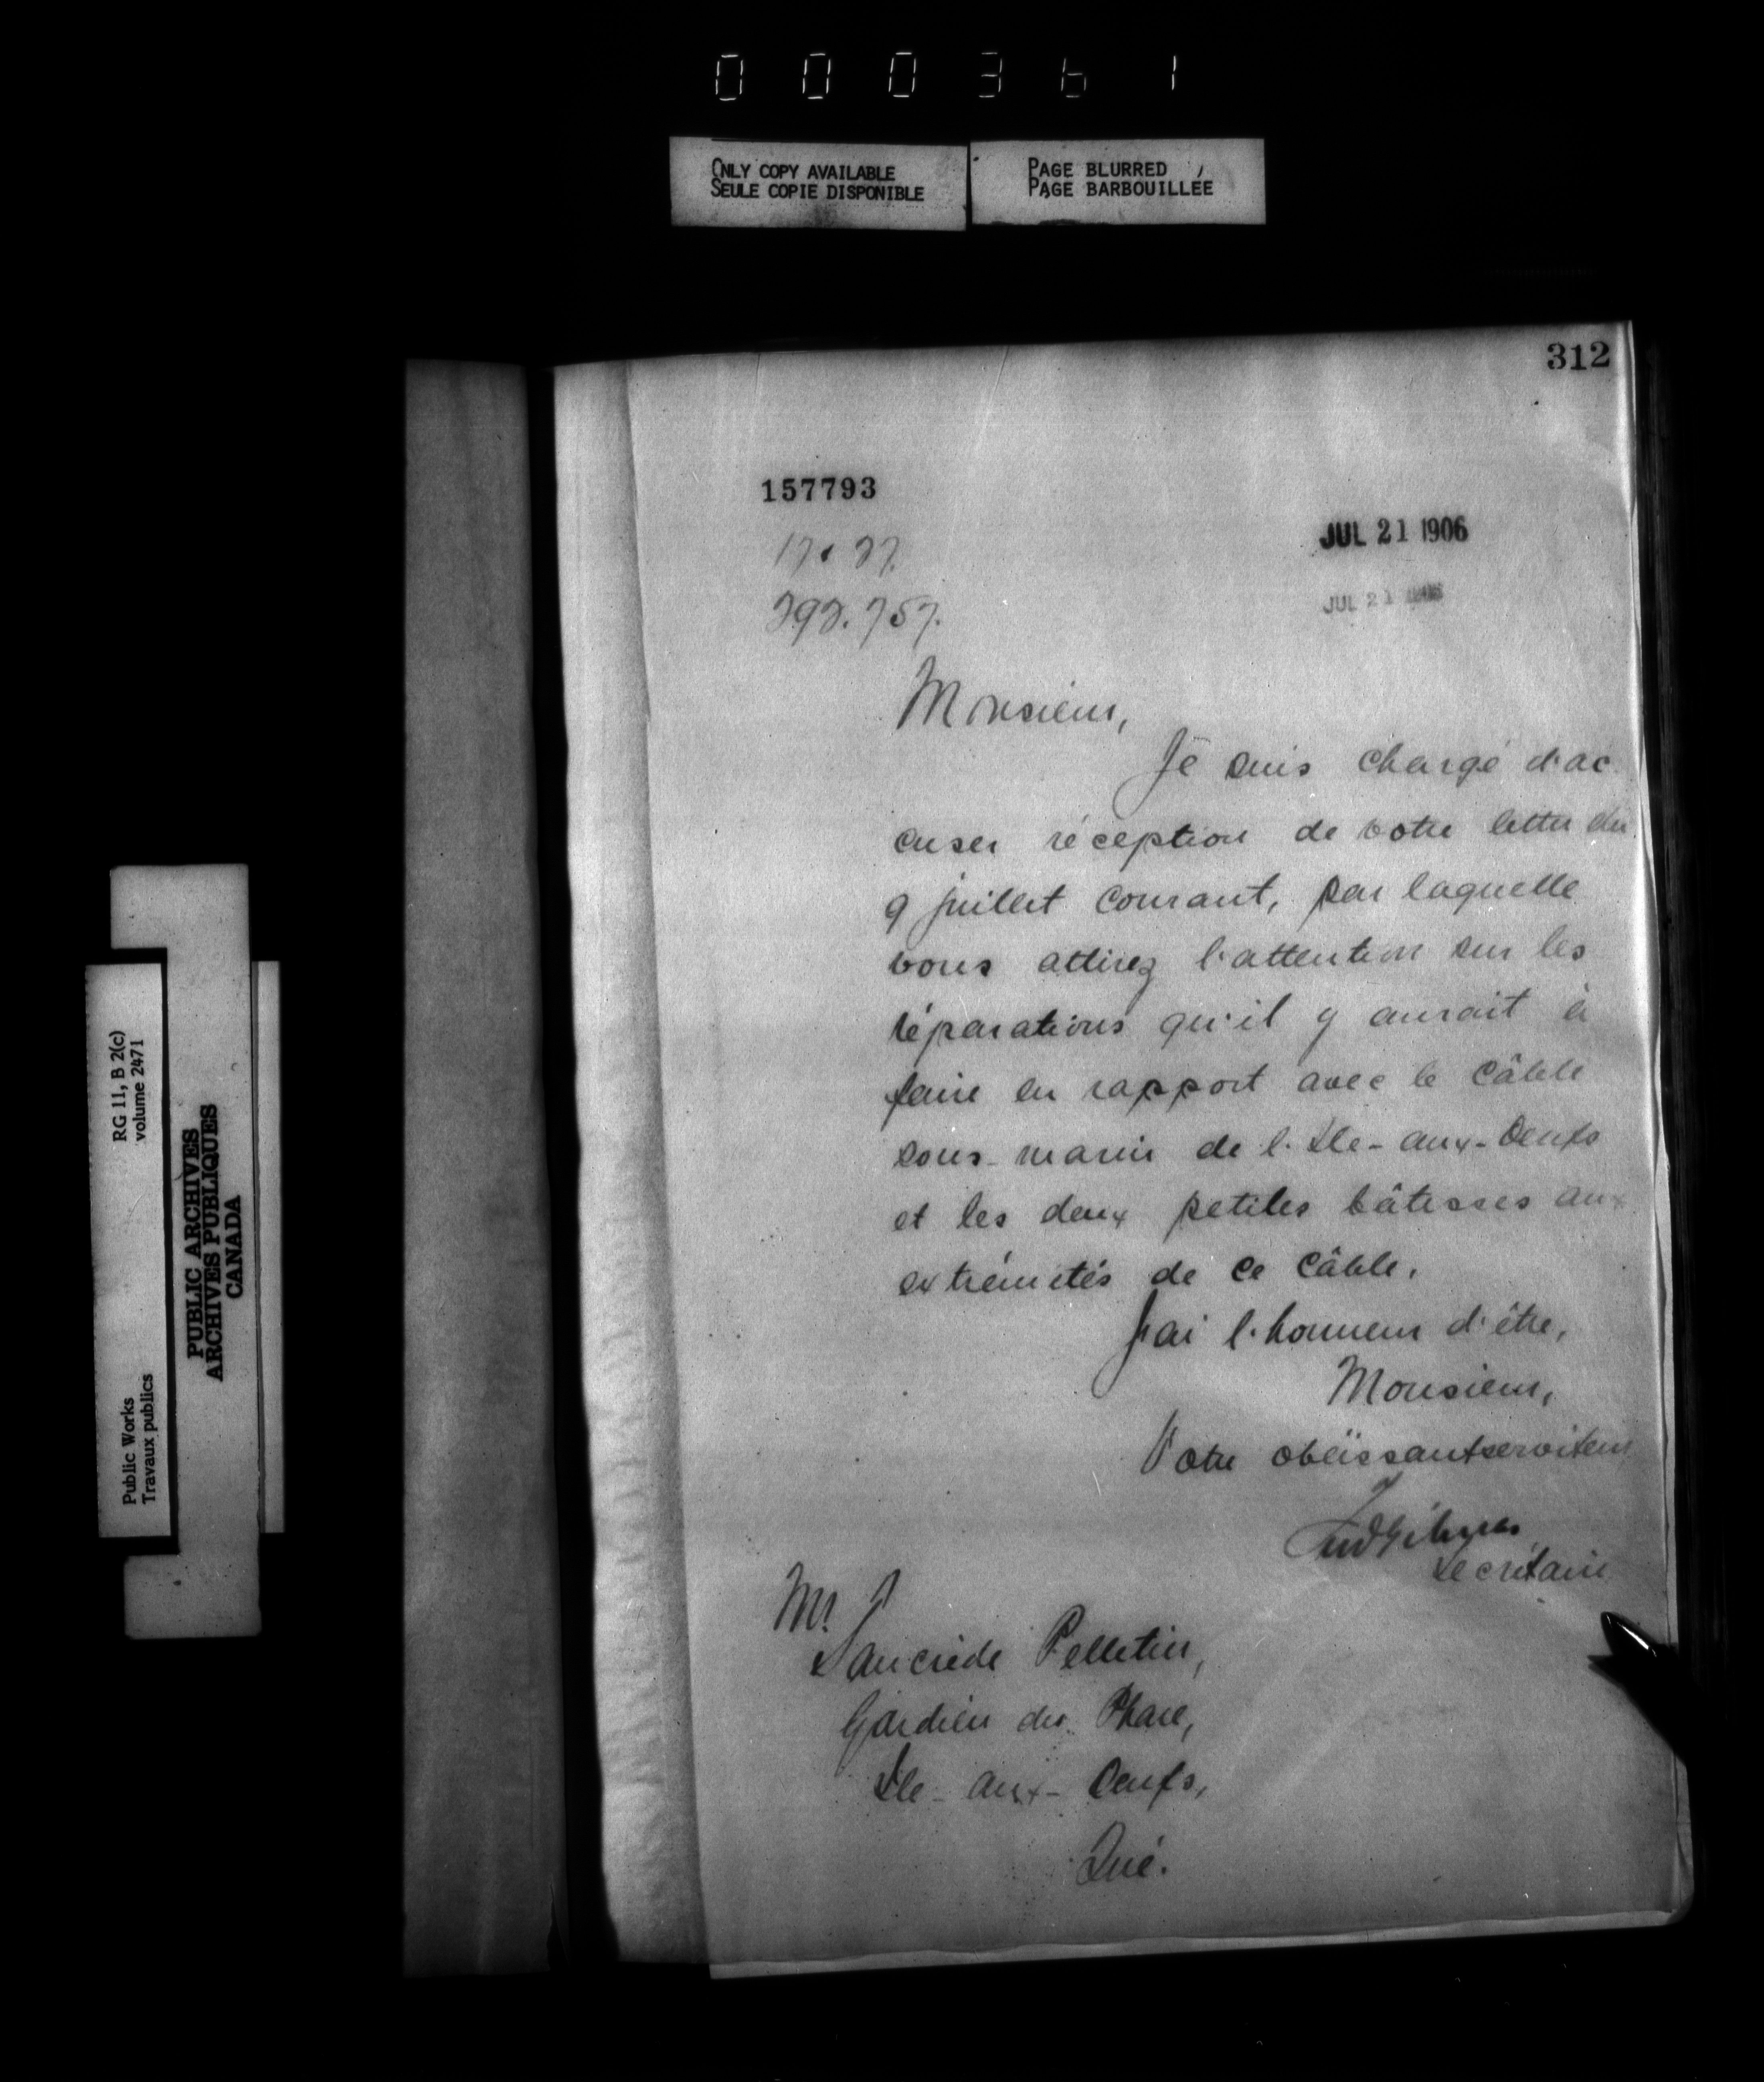 000361
ONLY COPY AVAILABLE
SEULE COPIE DISPONIBLE
PAGE BLURRED
PAGE BARBOUILLEE
312
157793
JUL 21 1906
JUL 21 1906
Monsieur,
Je suis chargé d'ac
cuser réception de votre lettre du
9 juillet courant, par laquelle
vous attirez l'attention sur les
réparations qu'il y aurait à
faire en rapport avec le câble
sous-marin de l'Ile-aux-Oeufs
et les deux petites bâtisses aux
extrémités de ce câble.
J'ai l'honneur d'être,
Monsieur,
Votre obéissant serviteur
Secrétaire
Mr
Tancrède Pelletier,
Gardien du Phare,
Ile-aux-Oeufs,
Qué.
RG 11, B 2(c)
volume 2471
Public Works
Travaux publics
PUBLIC ARCHIVES
ARCHIVES PUBLIQUES
CANADA